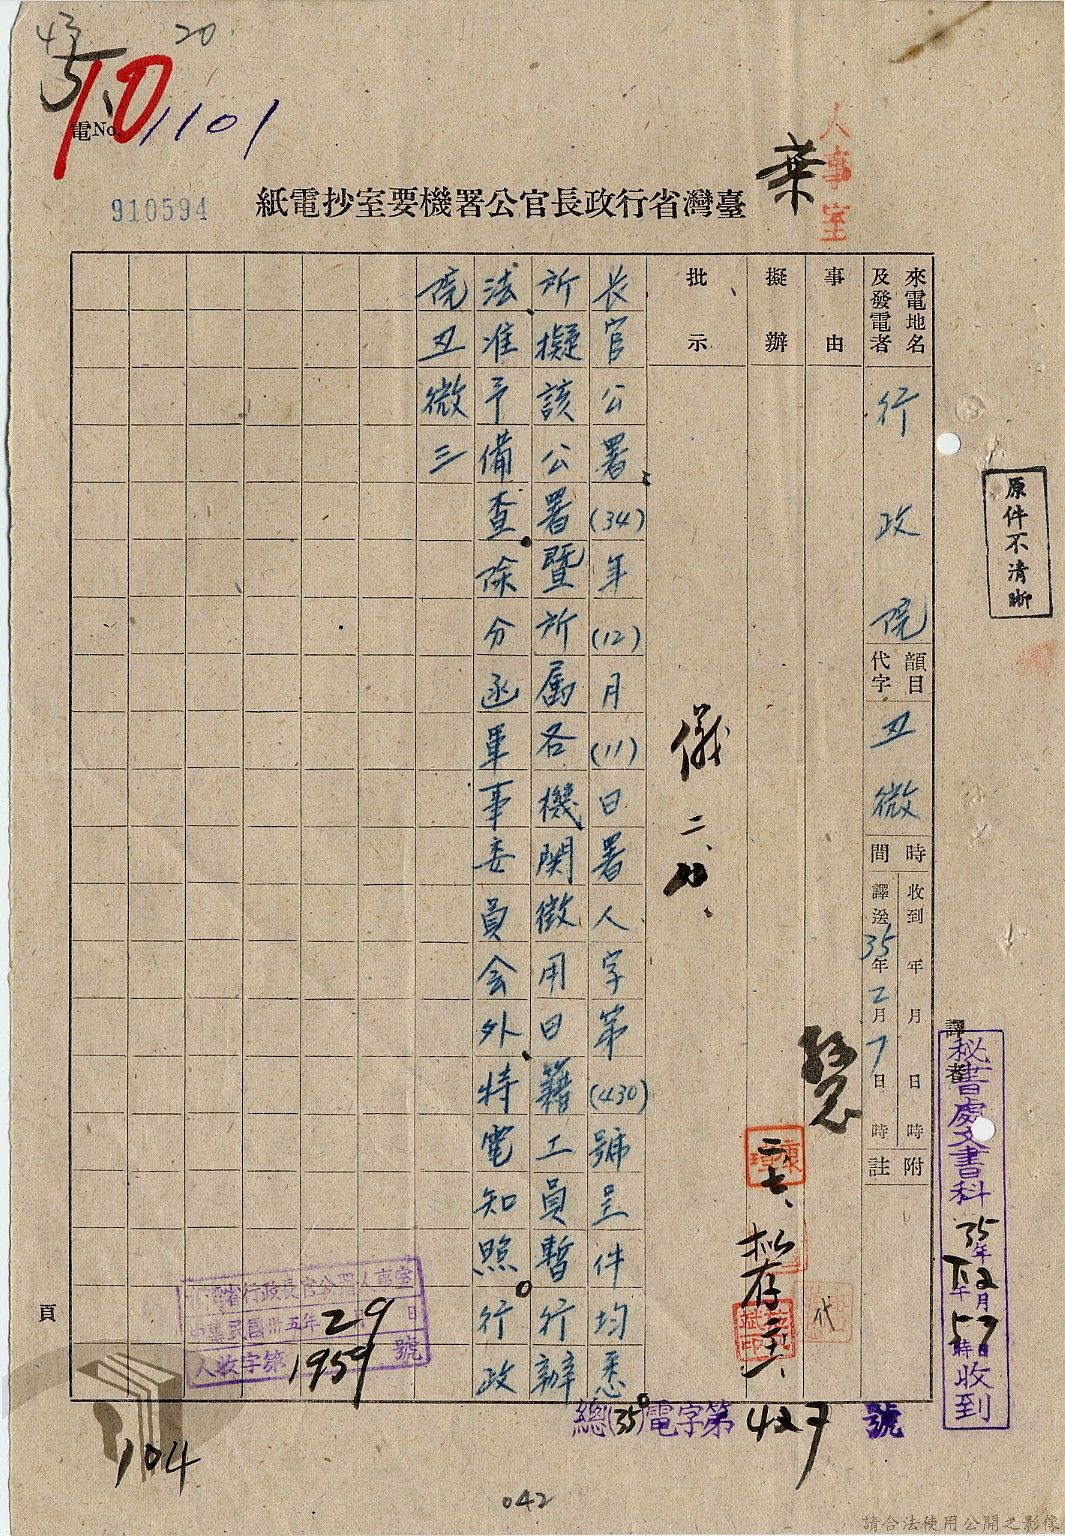 20
10
電No. 1101
910594
人事室
葉
臺灣省行政長官公署機要室抄電紙
來電地名及發電者
行政院
韻目代字
丑微
時間
收到 年 月 日 時
譯送 35年2月7日 時
附註
事由
擬辦
擬存
批示
儀 二、
長官公署(34)年(12)月(11)日署人字第(430)號呈件均悉。
所擬該公署暨所屬各機關徵用日籍工員暫行辦
法准予備查除分函軍事委員会外特電知照。行政
院丑微三
原件不清晰
譯者
秘書處文書科 35年2月7日下午5時收到
臺灣省行政長官公署人事室
中華民國卅五年2月9日
人收字第1959號
總(35)電字第427號
代
頁
104
042
請合法使用公開之影像